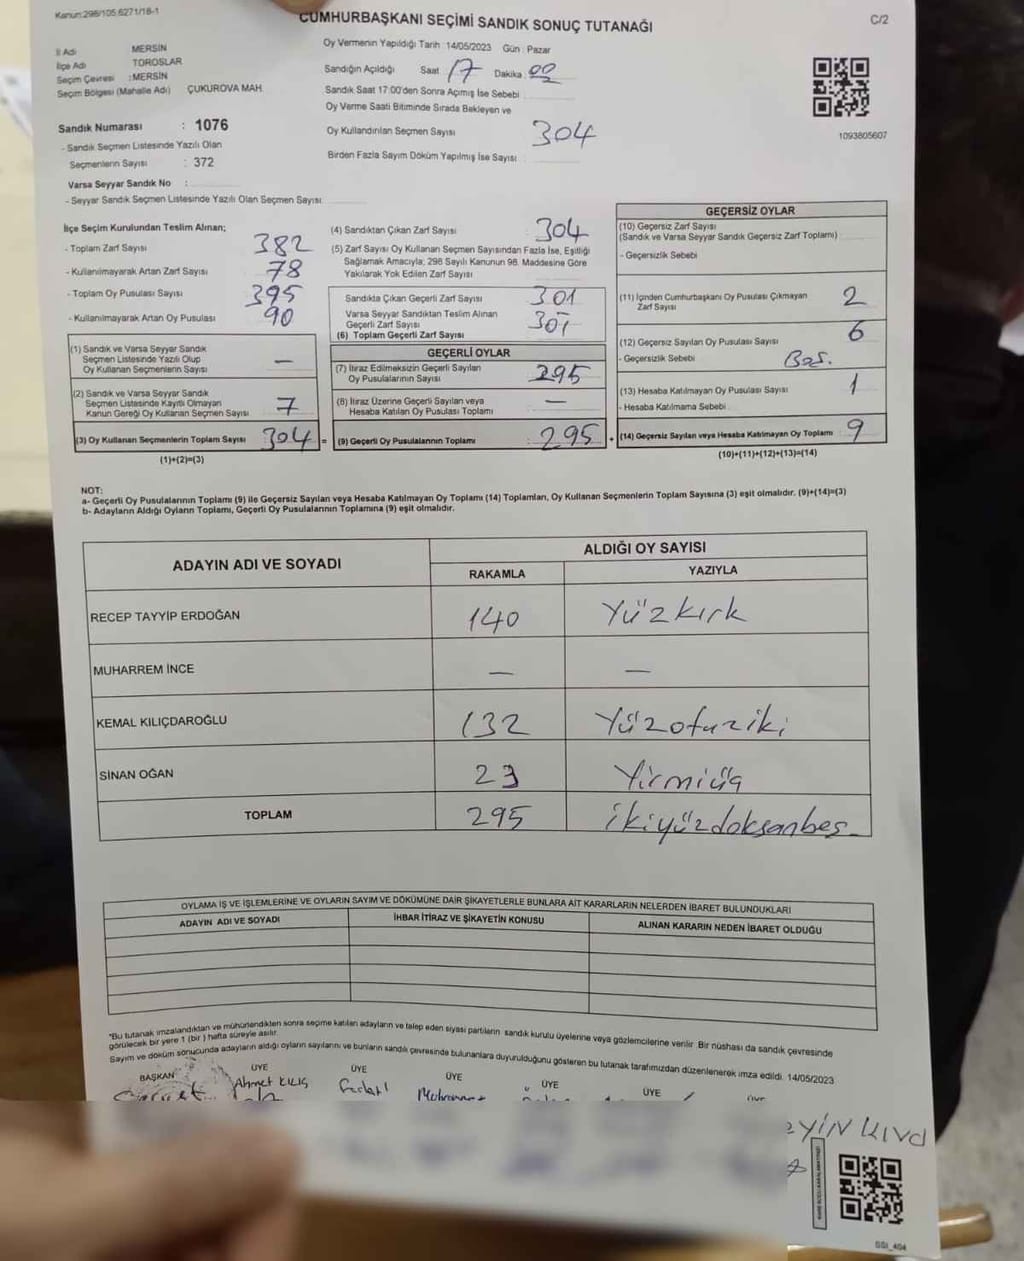 Kanun:298/105.6271/18-1
CUMHURBAŞKANI SEÇİMİ SANDIK SONUÇ TUTANAĞI
C/2
İl Adı MERSİN
İlçe Adı TOROSLAR
Seçim Çevresi : MERSİN
Seçim Bölgesi (Mahalle Adı) ÇUKUROVA MAH.
Sandık Numarası : 1076
- Sandık Seçmen Listesinde Yazılı Olan
Seçmenlerin Sayısı : 372
Varsa Seyyar Sandık No :
- Seyyar Sandık Seçmen Listesinde Yazılı Olan Seçmen Sayısı
Oy Vermenin Yapıldığı Tarih :14/05/2023 Gün : Pazar
Sandığın Açıldığı Saat 17 Dakika 00
Sandık Saat 17:00'den Sonra Açımış İse Sebebi
Oy Verme Saati Bitiminde Sırada Bekleyen ve
Oy Kullandırılan Seçmen Sayısı 304
Birden Fazla Sayım Döküm Yapılmış İse Sayısı :
1093805607
İlçe Seçim Kurulundan Teslim Alınan;
- Toplam Zarf Sayısı 382
- Kullanılmayarak Artan Zarf Sayısı 78
- Toplam Oy Pusulası Sayısı 395
- Kullanılmayarak Artan Oy Pusulası 90
(1) Sandık ve Varsa Seyyar Sandık
Seçmen Listesinde Yazılı Olup
Oy Kullanan Seçmenlerin Sayısı —
(2) Sandık ve Varsa Seyyar Sandık
Seçmen Listesinde Kayıtlı Olmayan
Kanun Gereği Oy Kullanan Seçmen Sayısı 7
(3) Oy Kullanan Seçmenlerin Toplam Sayısı 304 =
(1)+(2)=(3)
(4) Sandıktan Çıkan Zarf Sayısı 304
(5) Zarf Sayısı Oy Kullanan Seçmen Sayısından Fazla İse, Eşitliği
Sağlamak Amacıyla; 298 Sayılı Kanunun 98. Maddesine Göre
Yakılarak Yok Edilen Zarf Sayısı
Sandıkta Çıkan Geçerli Zarf Sayısı 301
Varsa Seyyar Sandıktan Teslim Alınan
Geçerli Zarf Sayısı
(6) Toplam Geçerli Zarf Sayısı 301
GEÇERLİ OYLAR
(7) İtiraz Edilmeksizin Geçerli Sayılan
Oy Pusulalarının Sayısı 295
(8) İtiraz Üzerine Geçerli Sayılan veya
Hesaba Katılan Oy Pusulası Toplamı —
(9) Geçerli Oy Pusulalarının Toplamı : 295 +
GEÇERSİZ OYLAR
(10) Geçersiz Zarf Sayısı
(Sandık ve Varsa Seyyar Sandık Geçersiz Zarf Toplamı)
- Geçersizlik Sebebi
(11) İçinden Cumhurbaşkanı Oy Pusulası Çıkmayan
Zarf Sayısı 2
(12) Geçersiz Sayılan Oy Pusulası Sayısı 6
- Geçersizlik Sebebi Boş.
(13) Hesaba Katılmayan Oy Pusulası Sayısı 1
- Hesaba Katılmama Sebebi
(14) Geçersiz Sayılan veya Hesaba Katılmayan Oy Toplamı 9
(10)+(11)+(12)+(13)=(14)
NOT:
a- Geçerli Oy Pusulalarının Toplamı (9) ile Geçersiz Sayılan veya Hesaba Katılmayan Oy Toplamı (14) Toplamları, Oy Kullanan Seçmenlerin Toplam Sayısına (3) eşit olmalıdır. (9)+(14)=(3)
b- Adayların Aldığı Oyların Toplamı, Geçerli Oy Pusulalarının Toplamına (9) eşit olmalıdır.
ADAYIN ADI VE SOYADI
ALDIĞI OY SAYISI
RAKAMLA YAZIYLA
RECEP TAYYİP ERDOĞAN 140 Yüzkırk
MUHARREM İNCE — —
KEMAL KILIÇDAROĞLU 132 Yüzotuziki
SİNAN OĞAN 23 Yirmiüç
TOPLAM 295 ikiyüzdoksanbeş
OYLAMA İŞ VE İŞLEMLERİNE VE OYLARIN SAYIM VE DÖKÜMÜNE DAİR ŞİKAYETLERLE BUNLARA AİT KARARLARIN NELERDEN İBARET BULUNDUKLARI
ADAYIN ADI VE SOYADI İHBAR İTİRAZ VE ŞİKAYETİN KONUSU ALINAN KARARIN NEDEN İBARET OLDUĞU
*Bu tutanak imzalandıktan ve mühürlendikten sonra seçime katılan adayların ve talep eden siyasi partilerin sandık kurulu üyelerine veya gözlemcilerine verilir. Bir nüshası da sandık çevresinde
görülecek bir yere 1 (bir) hafta süreyle asılır.
Sayım ve döküm sonucunda adayların aldığı oyların sayılarını ve bunların sandık çevresinde bulunanlara duyurulduğunu gösteren bu tutanak tarafımızdan düzenlenerek imza edildi. 14/05/2023
BAŞKAN ÜYE ÜYE ÜYE ÜYE ÜYE ÜYE
Ahmet KILIÇ
GSI_404